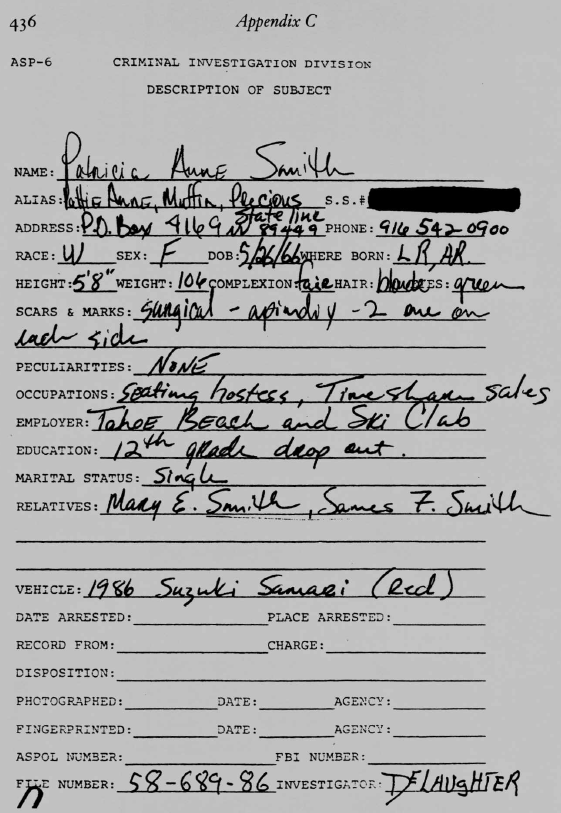 436 Appendix C
ASP-6 CRIMINAL INVESTIGATION DIVISION
DESCRIPTION OF SUBJECT
NAME: Patricia Anne Smith
ALIAS: Pattie Anne, Muffin, Precious S.S.#
State line
ADDRESS: P.O. Box 4169 NV 89449 PHONE: 916 542 0900
RACE: W SEX: F DOB: 5/26/66 WHERE BORN: LR, AR.
HEIGHT: 5'8" WEIGHT: 106 COMPLEXION: fair HAIR: blonde ES: green
SCARS & MARKS: Surgical - - 2 one on
each side
PECULIARITIES: NONE
OCCUPATIONS: Seating hostess, Timeshare sales
EMPLOYER: Tahoe Beach and Ski Club
EDUCATION: 12th grade drop out.
MARITAL STATUS: Single
RELATIVES: Mary E. Smith, James F. Smith
VEHICLE: 1986 Suzuki Samari (Red)
DATE ARRESTED: PLACE ARRESTED:
RECORD FROM: CHARGE:
DISPOSITION:
PHOTOGRAPHED: DATE: AGENCY:
FINGERPRINTED: DATE: AGENCY:
ASPOL NUMBER: FBI NUMBER:
FILE NUMBER: 58-689-86 INVESTIGATOR: DELAUGHTER